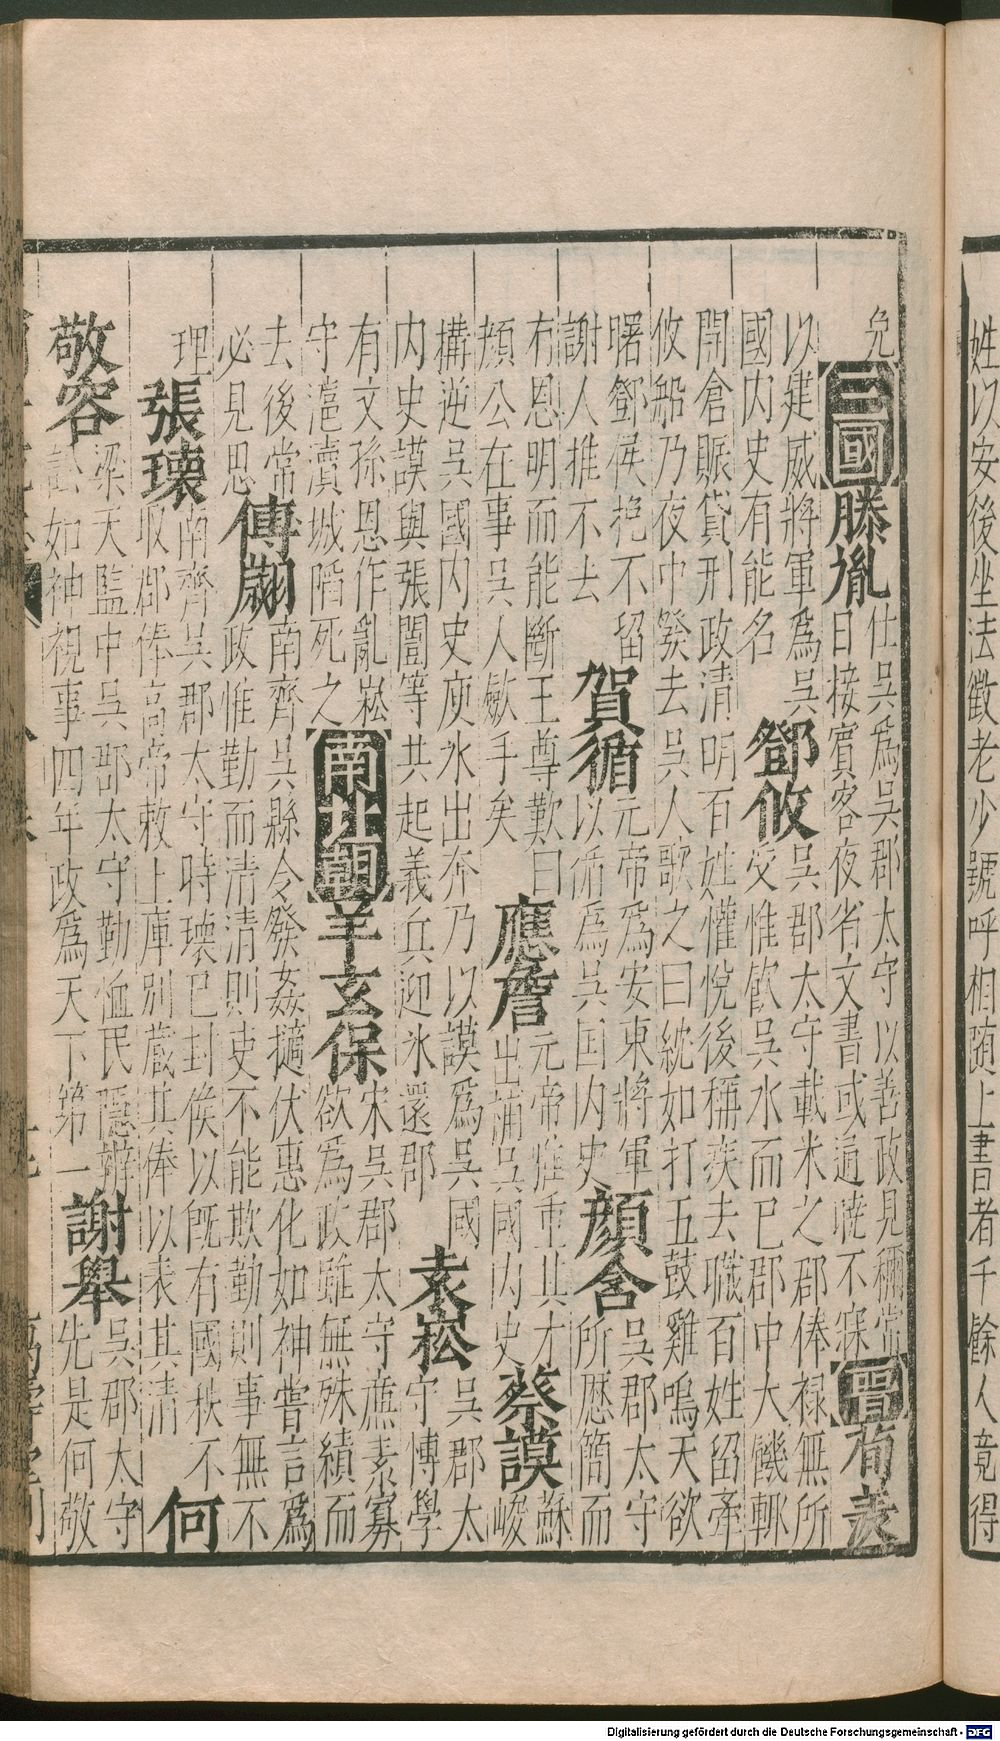 姓以安後坐法徵老少號呼相随上書者千餘人竟得
免
三國
滕胤
仕吳爲吳郡太守以善政見稱常
日接賓客夜省文書或通曉不寐
晋
荀羡
以建威將軍爲吳
國内史有能名
鄧攸
吳郡太守載米之郡俸禄無所
受惟飲吳水而已郡中大饑輙
開倉賑貸刑政清明百姓懽悅後稱疾去職百姓留牽
攸船乃夜中發去吳人歌之曰紞如打五鼓雞鳴天欲
曙鄧侯挽不留
謝人推不去
賀循
元帝爲安東將軍
以循爲吳国内史
顔含
吳郡太守
所歷簡而
有恩明而能斷王尊歎曰
顔公在事吳人歛手矣
應詹
元帝雅重其才
出補吳國内史
蔡謨
蘇
峻
構逆吳國内史庾氷出奔乃以謨爲吳國
内史謨與張闓等共起義兵迎氷還郡
袁崧
吳郡太
守博學
有文孫恩作亂崧
守滬瀆城陷死之
南北朝
羊玄保
宋吳郡太守廉素寡
欲爲政雖無殊績而
去後常
必見思
傅翽
南齊吳縣令發姦擿伏惠化如神嘗言爲
政惟勤而清清則吏不能欺勤則事無不
理
張瓌
南齊吳郡太守時瓌已封侯以旣有國秩不
取郡俸高帝敕上庫别蔵其俸以表其清
何
敬容
梁天監中吳郡太守勤恤民隱辨
訟如神視事四年政爲天下第一
謝舉
吳郡太守
先是何敬
Digitalisierung gefördert durch die Deutsche Forschungsgemeinschaft - DFG